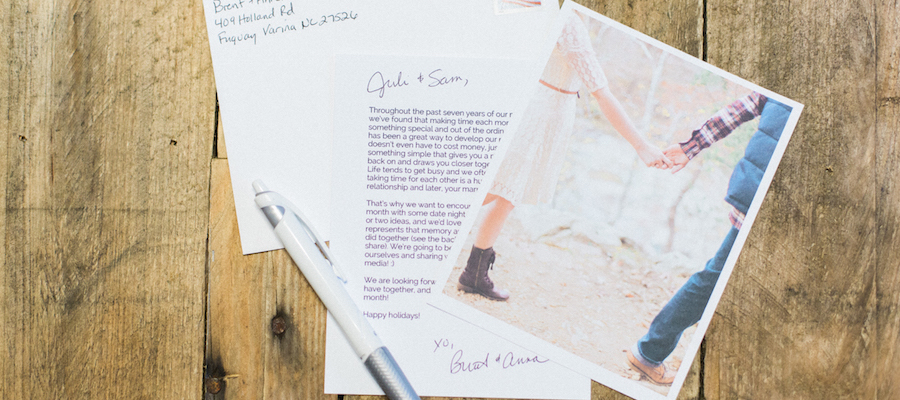 Brent +
409 Holland Rd
Fuquay Varina NC 27526
Juli & Sam,
Throughout the past seven years of our
we've found that making time each
something special and out of the
has been a great way to develop our
doesn't even have to cost money,
something simple that gives you a
back on and draws you closer
Life tends to get busy and we
taking time for each other is a
relationship and later, your
That's why we want to
month with some date night
or two ideas, and we'd love
represents that memory
did together (see the
share). We're going to
ourselves and sharing
media! :)
We are looking
have together, and
month!
Happy holidays!
xo,
Brent & Anna